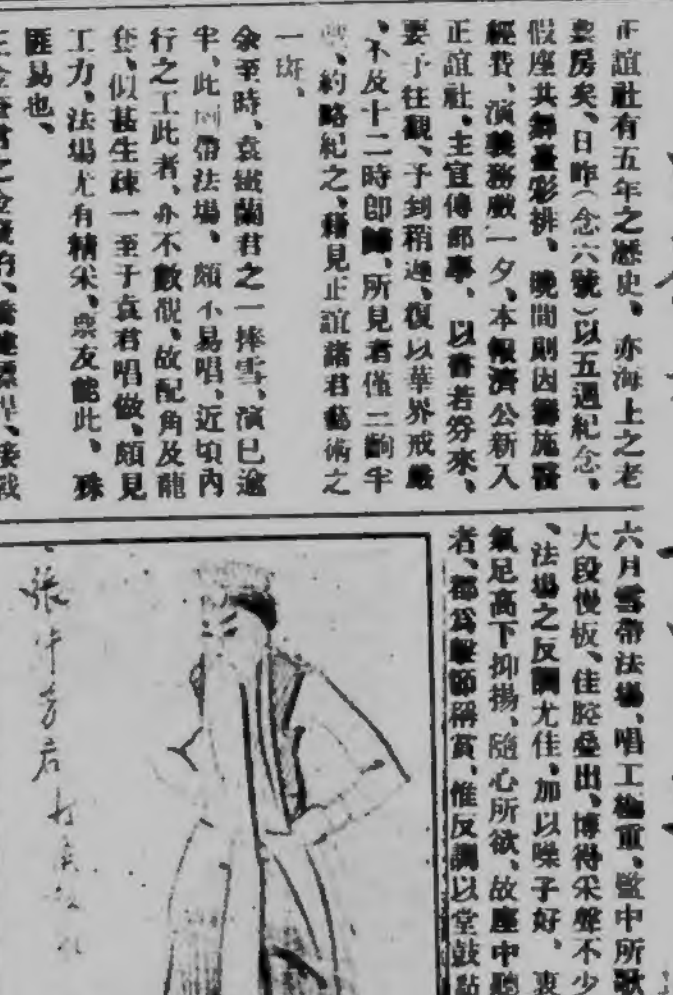 正誼社有五年之歷史、亦海上之老
票房矣、日昨(念六號)以五週紀念、
假座共舞臺彩排、晚間則因籌施醫
經費、演義務戲一夕、本報濟公新入
正誼社、主宣傳部事、以書若劵來、
要予往觀、予到稍遲、復以華界戒嚴
、不及十二時卽歸、所見者僅三齣半
、約略紀之、藉見正誼諸君藝術之
一斑、
余至時、袁鐵蘭君之一捧雪、演已逾
半、此劇帶法場、頗不易唱、近頃內
行之工此者、亦不數覯、故配角及龍
套、似甚生疎一至于袁君唱做、頗見
工力、法場尤有精采、票友能此、殊
匪易也、
六月雪帶法場、唱工極重、監中所歌
大段慢板、佳腔叠出、博得采聲不少
、法場之反調尤佳、加以嗓子好、衷
氣足高下抑揚、隨心所欲、故座中聽
者、都爲擊節稱賞、惟反調以堂鼓點
張 君打